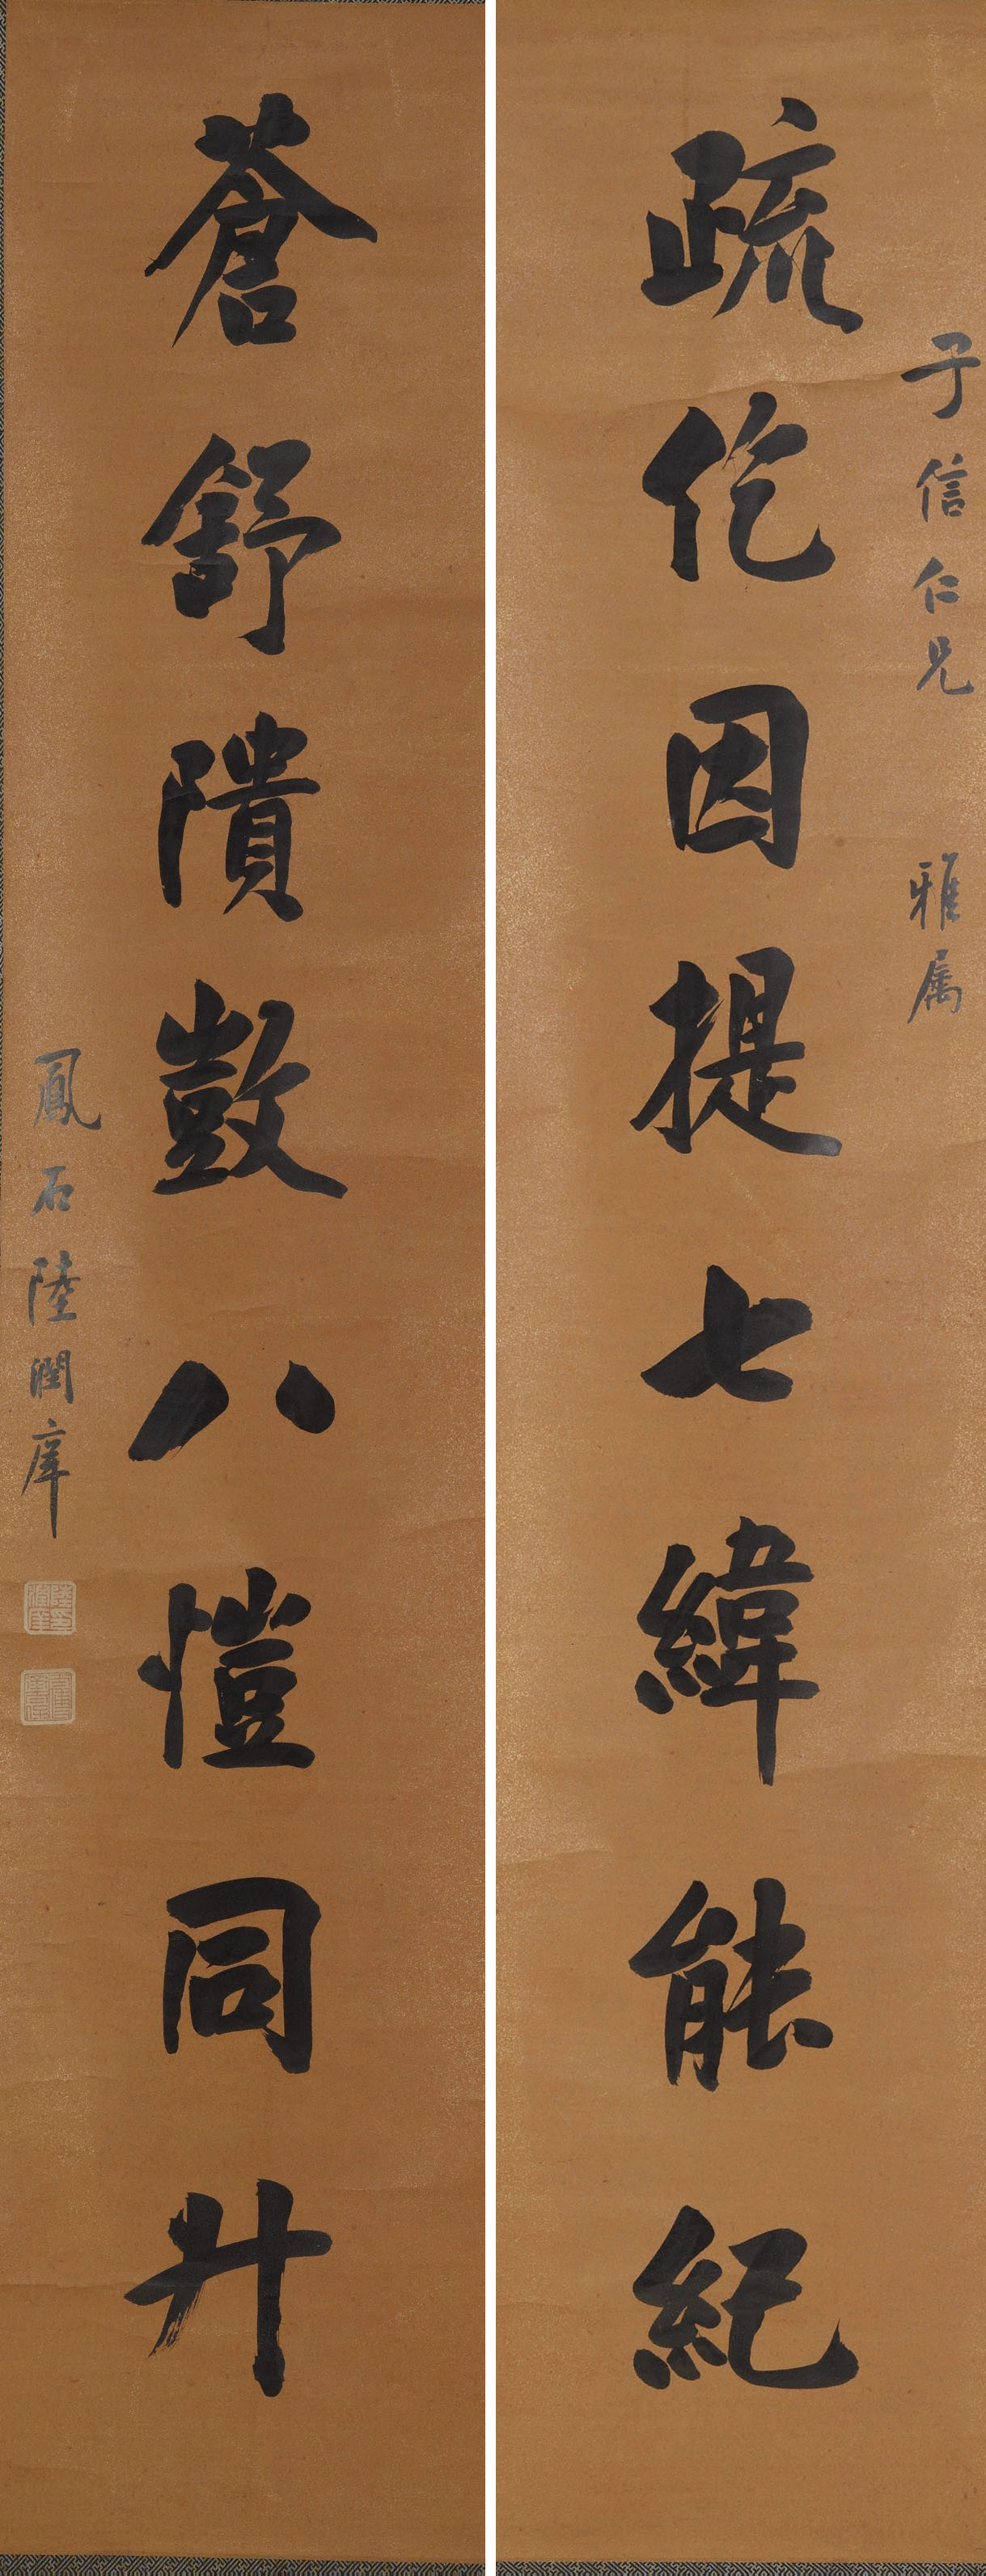 子信仁兄 雅属
疏仡因提七緯能紀
蒼舒隤敳八愷同升
鳳石陸潤庠